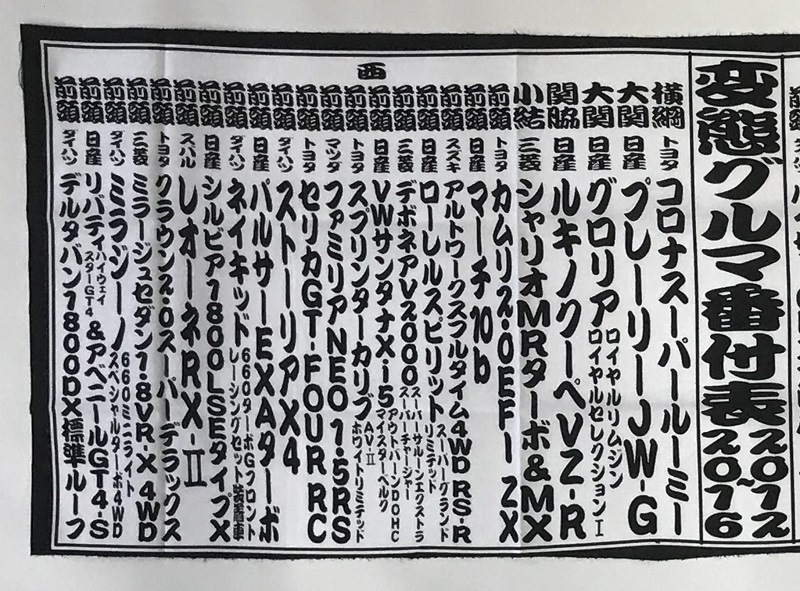 変態グルマ番付表
2012~2016
西
横綱 トヨタ コロナスーパールーミー
大関 日産 プレーリーJW-G
大関 日産 グロリア ロイヤルリムジン ロイヤルセレクションI
関脇 日産 ルキノクーペVZ-R
小結 三菱 シャリオMRターボ&MX
前頭 トヨタ カムリ2.0EFI ZX
前頭 日産 マーチ10b
前頭 スズキ アルトワークスフルタイム4WD RS-R
前頭 日産 ローレルスピリット スーパーグランドリミテッド
前頭 三菱 デボネアV2000 スーパーサルーンエクストラ スーパーチャージャー
前頭 日産 VWサンタナXi-5 アウトバーンDOHC マイスターベルク
前頭 トヨタ スプリンターカリブ AV-II ホワイトリミテッド
前頭 マツダ ファミリアNEO 1.5RS
前頭 トヨタ セリカGT-FOUR RC
前頭 ダイハツ ストーリアX4
前頭 日産 パルサーEXAターボ
前頭 ダイハツ ネイキッド 660ターボGフロント レーシングセット装着車
前頭 日産 シルビア1800LSEタイプX
前頭 スバル レオーネRX-II
前頭 トヨタ クラウン2.0スーパーデラックス
前頭 三菱 ミラージュセダン1.8VR・X 4WD
前頭 ダイハツ ミラジーノ 660ミニライト スペシャルターボ4WD
前頭 日産 リバティ ハイウェイスターGT4 &アベニールGT4-S
前頭 ダイハツ デルタバン1800DX標準ルーフ